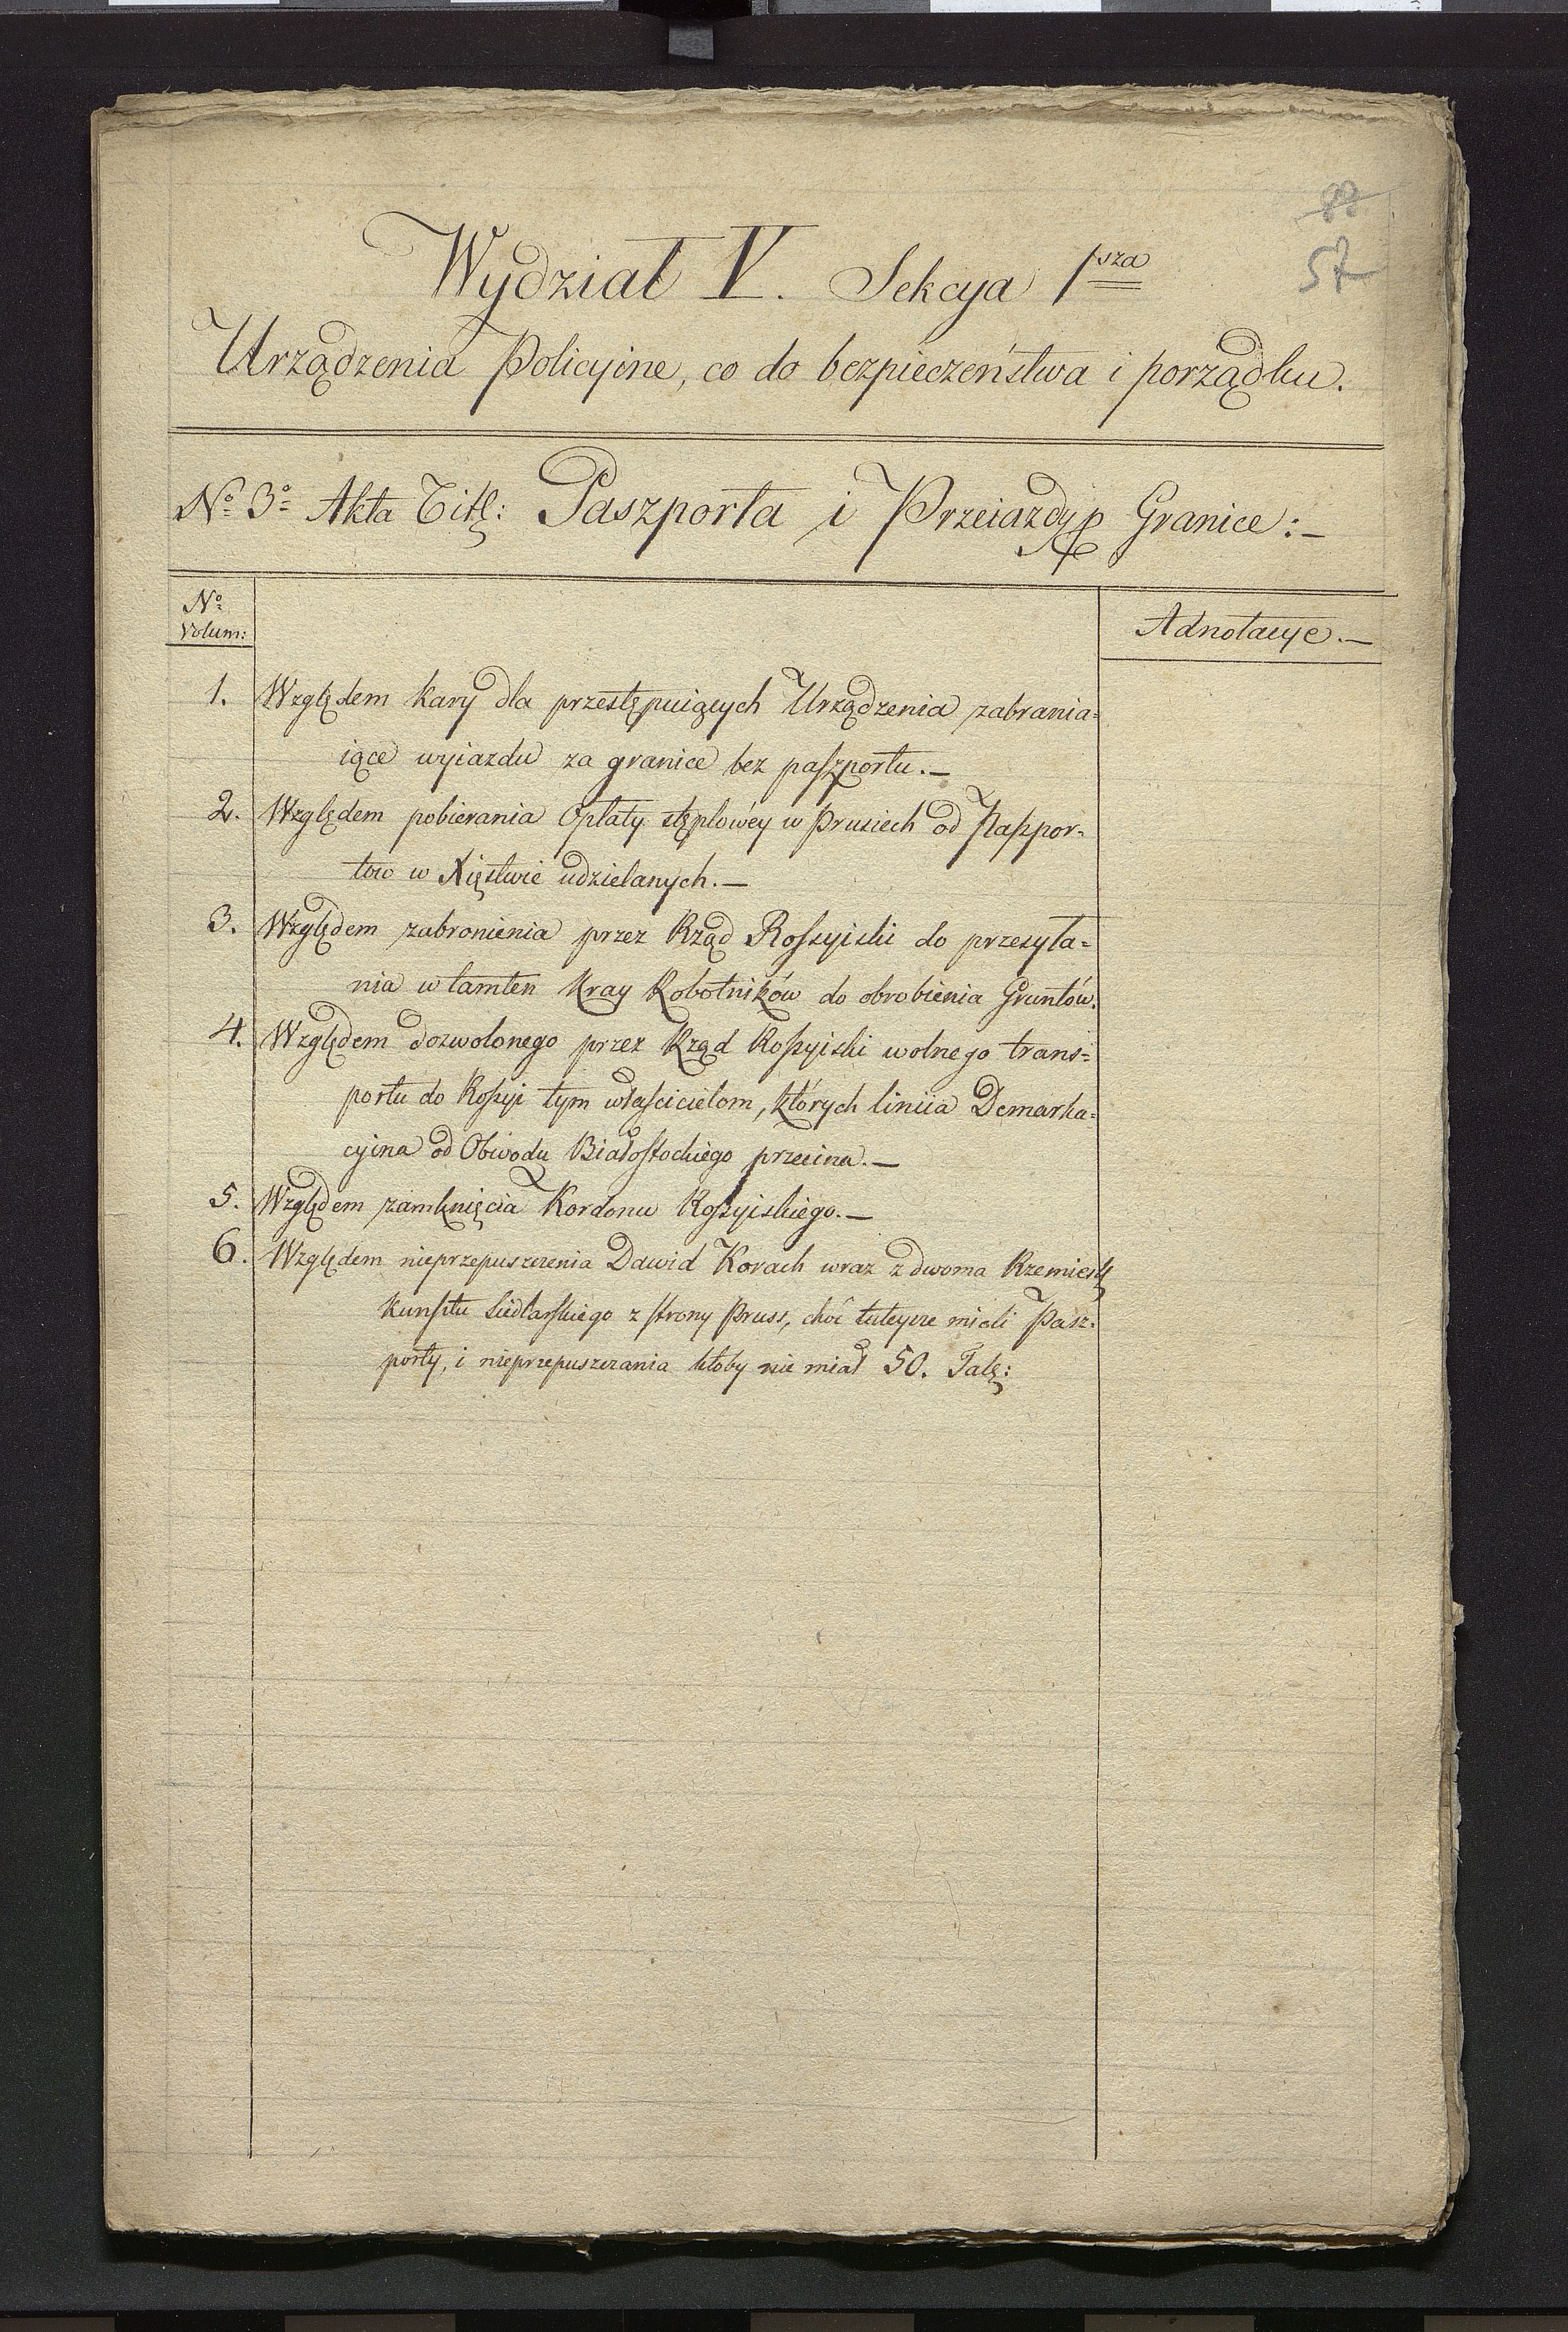 88
57
Wydział V. Sekcya 1sza
Urządzenia Policyine, co do bezpieczeństwa i porządku.
No 3o Akta Titl: Paszporta i Przeiazdy p Granice:—
No Volum:
Adnotacye.—
1. Względem kary dla przestępuiących Urządzenia zabrania=
iące wyiazdu za granice bez paszportu.—
2. Względem pobierania Opłaty stęplowéy w Prusiech od Paszpor=
tow w Xięstwie udzielanych.—
3. Względem zabronienia przez Rząd Rossyiski do przesyła=
nia w tamten Kray Robotników do obrobienia Gruntów.
4. Względem dozwolonego przez Rząd Rossyiski wolnego trans=
portu do Rossyi tym właścicielom, których liniia Demarka=
cyina od Obwodu Białostockiego przecina.—
5. Względem zamknięcia Kordonu Rossyiskiego.—
6. Względem nieprzepuszczenia Dawid Korach wraz z dwoma Rzemieśl
Kunsztu Siedlarskiego z strony Pruss, choć tuteysze mieli Pasz=
porty, i nieprzepuszczania ktoby nie miał 50. Tal: